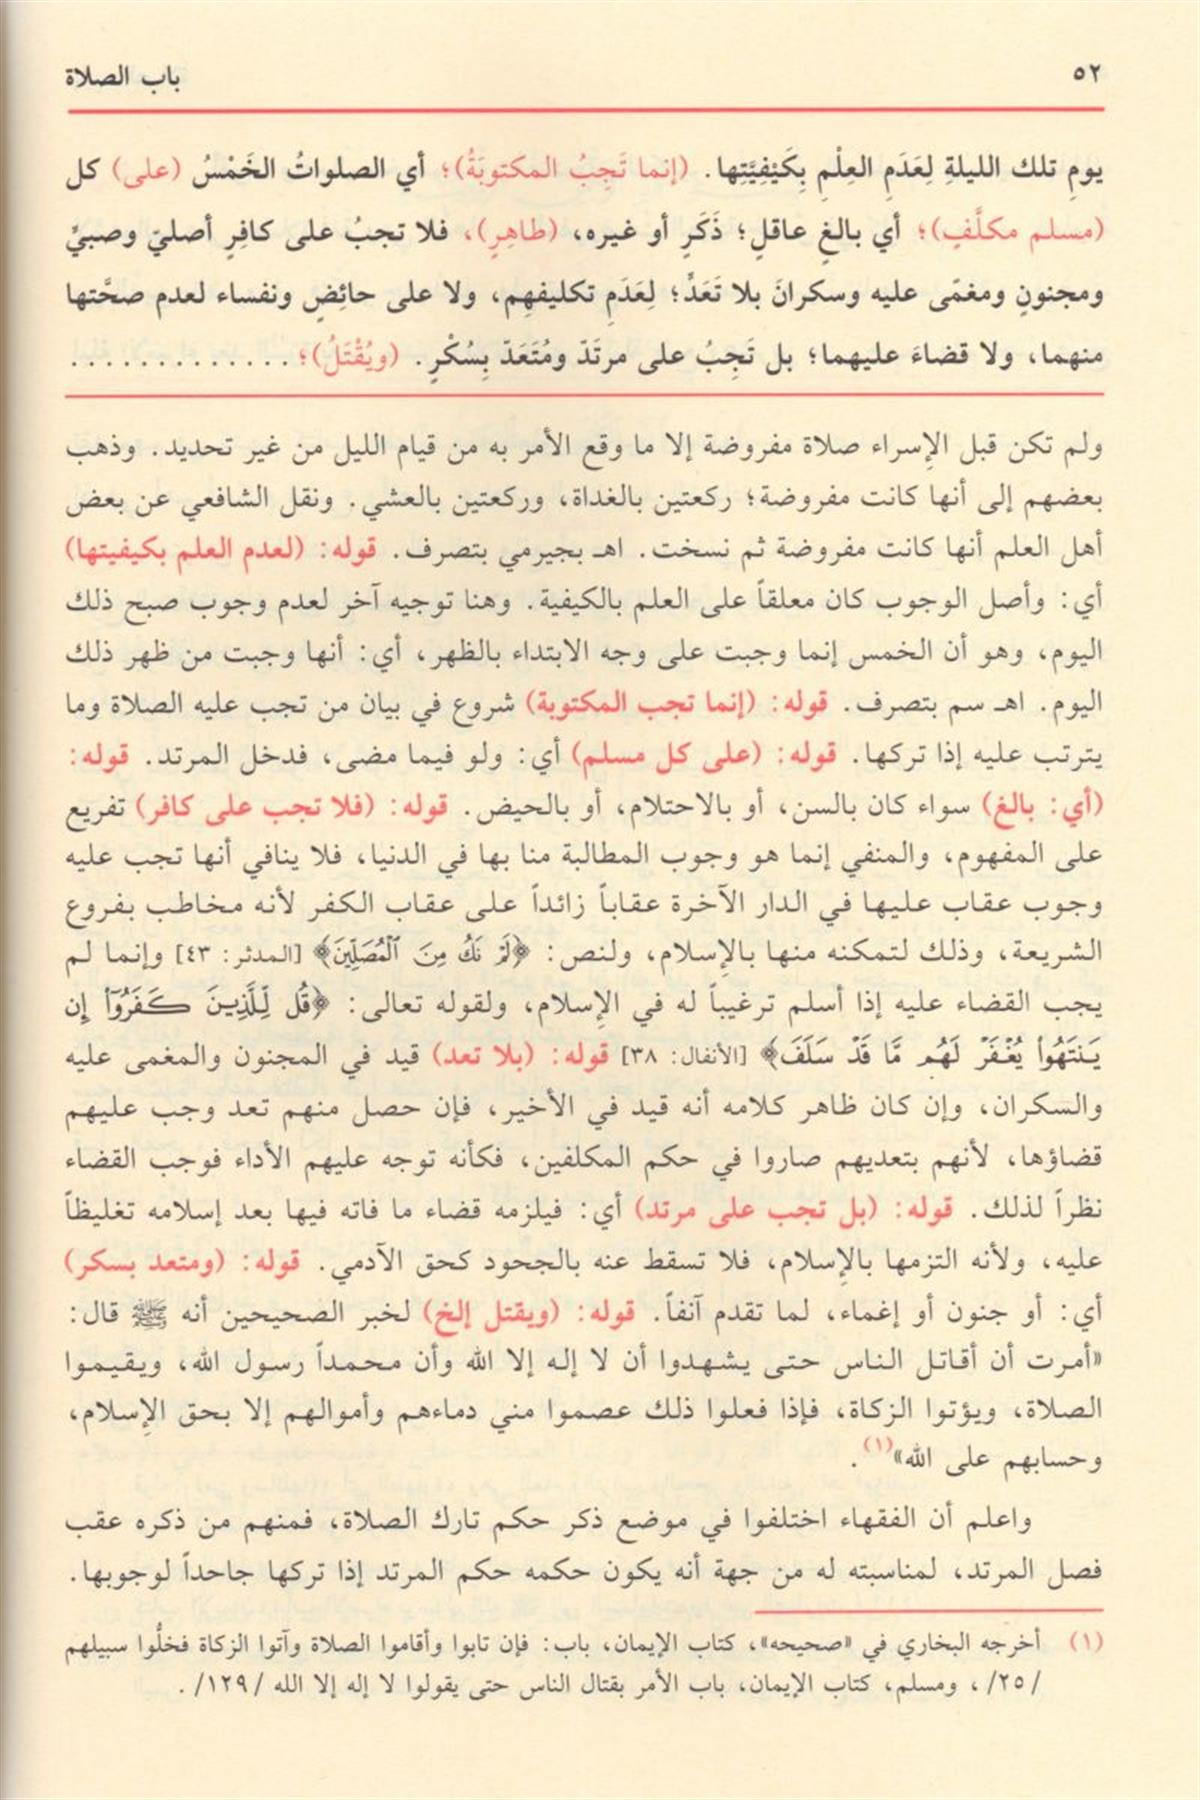 ٥٢
باب الصلاة
يومِ تلك الليلةِ لِعَدَمِ العِلْمِ بِكَيْفِيَّتِها. (إنما تَجِبُ المكتوبَةُ)؛ أي الصلواتُ الخَمْسُ (على) كل
(مسلم مكلَّفٍ)؛ أي بالغٍ عاقلٍ؛ ذَكَرٍ أو غيره، (طاهِرٍ)، فلا تجبُ على كافِرٍ أصليّ وصبيٍّ
ومجنونٍ ومغمًى عليه وسكرانَ بلا تَعَدٍّ؛ لِعَدَمِ تكليفهِم، ولا على حائِضٍ ونفساء لعدم صحَّتها
منهما، ولا قضاءَ عليهما؛ بل تَجِبُ على مرتَدّ ومُتَعَدّ بِسُكْرٍ. (ويُقْتَلُ)؛ . . . . . . . . . . . . .
ولم تكن قبل الإسراء صلاة مفروضة إلا ما وقع الأمر به من قيام الليل من غير تحديد. وذهب
بعضهم إلى أنها كانت مفروضة؛ ركعتين بالغداة، وركعتين بالعشي. ونقل الشافعي عن بعض
أهل العلم أنها كانت مفروضة ثم نسخت. اهـ بجيرمي بتصرف. قوله: (لعدم العلم بكيفيتها)
أي: وأصل الوجوب كان معلقاً على العلم بالكيفية. وهنا توجيه آخر لعدم وجوب صبح ذلك
اليوم، وهو أن الخمس إنما وجبت على وجه الابتداء بالظهر، أي: أنها وجبت من ظهر ذلك
اليوم. اهـ سم بتصرف. قوله: (إنما تجب المكتوبة) شروع في بيان من تجب عليه الصلاة وما
يترتب عليه إذا تركها. قوله: (على كل مسلم) أي: ولو فيما مضى، فدخل المرتد. قوله:
(أي: بالغ) سواء كان بالسن، أو بالاحتلام، أو بالحيض. قوله: (فلا تجب على كافر) تفريع
على المفهوم، والمنفي إنما هو وجوب المطالبة منا بها في الدنيا، فلا ينافي أنها تجب عليه
وجوب عقاب عليها في الدار الآخرة عقاباً زائداً على عقاب الكفر لأنه مخاطب بفروع
الشريعة، وذلك لتمكنه منها بالإسلام، ولنص: ﴿لَمْ نَكُ مِنَ ٱلْمُصَلِّينَ﴾ [المدثر: ٤٣] وإنما لم
يجب القضاء عليه إذا أسلم ترغيباً له في الإسلام، ولقوله تعالى: ﴿قُل لِّلَّذِينَ كَفَرُوٓا۟ إِن
يَنتَهُوا۟ يُغْفَرْ لَهُم مَّا قَدْ سَلَفَ﴾ [الأنفال: ٣٨] قوله: (بلا تعد) قيد في المجنون والمغمى عليه
والسكران، وإن كان ظاهر كلامه أنه قيد في الأخير، فإن حصل منهم تعد وجب عليهم
قضاؤها، لأنهم بتعديهم صاروا في حكم المكلفين، فكأنه توجه عليهم الأداء فوجب القضاء
نظراً لذلك. قوله: (بل تجب على مرتد) أي: فيلزمه قضاء ما فاته فيها بعد إسلامه تغليظاً
عليه، ولأنه التزمها بالإسلام، فلا تسقط عنه بالجحود كحق الآدمي. قوله: (ومتعد بسكر)
أي: أو جنون أو إغماء، لما تقدم آنفاً. قوله: (ويقتل إلخ) لخبر الصحيحين أنه ﷺ قال:
«أمرت أن أقاتل الناس حتى يشهدوا أن لا إله إلا الله وأن محمداً رسول الله، ويقيموا
الصلاة، ويؤتوا الزكاة، فإذا فعلوا ذلك عصموا مني دماءهم وأموالهم إلا بحق الإسلام،
وحسابهم على الله»(١).
واعلم أن الفقهاء اختلفوا في موضع ذكر حكم تارك الصلاة، فمنهم من ذكره عقب
فصل المرتد، لمناسبته له من جهة أنه يكون حكمه حكم المرتد إذا تركها جاحداً لوجوبها.
(١) أخرجه البخاري في «صحيحه»، كتاب الإيمان، باب: فإن تابوا وأقاموا الصلاة وآتوا الزكاة فخلُّوا سبيلهم
/٢٥/، ومسلم، كتاب الإيمان، باب الأمر بقتال الناس حتى يقولوا لا إله إلا الله /١٢٩/.